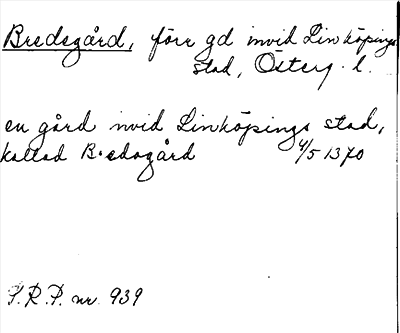 Bredsgård, förr gd invid Linköpings
stad, Österg. l.
en gård invid Linköpings stad,
kallad Bredsgård 4/5 1370
S.R.P. nr. 939